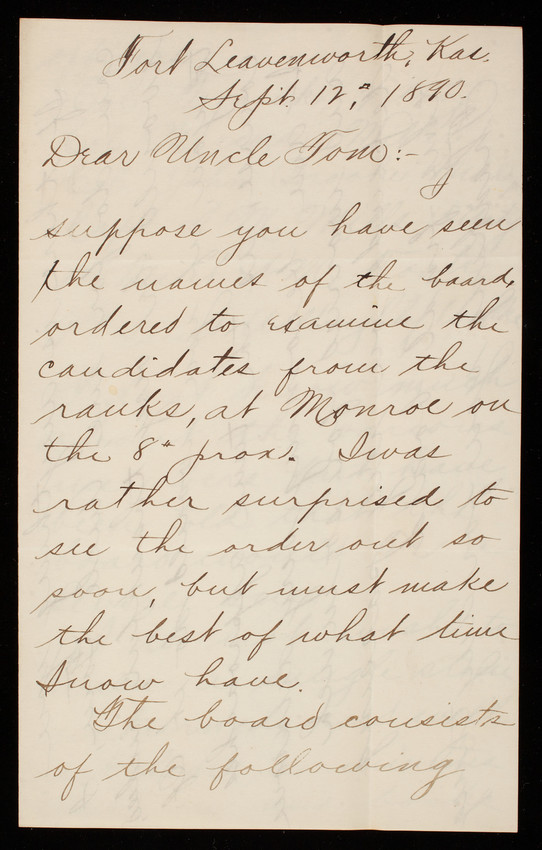 Fort Leavenworth, Kas.
Sept. 12th, 1890.
Dear Uncle Tom:-
I
suppose you have seen
the names of the board,
ordered to examine the
candidates from the
ranks, at Monroe on
the 8th prox. I was
rather surprised to
see the order out so
soon, but must make
the best of what time
I now have.
The board consists
of the following